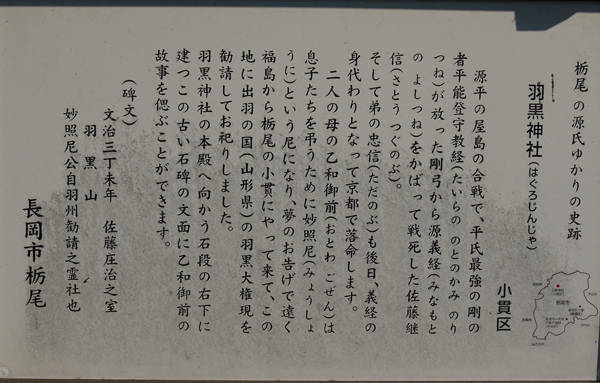 栃尾の源氏ゆかりの史跡
羽黒神社(はぐろじんじゃ)
小貫区
源平の屋島の合戦で、平氏最強の剛の
者平能登守教経(たいらの のとのかみ のり
つね)が放った剛弓から源義経(みなもと
の よしつね)をかばって戦死した佐藤継
信(さとう つぐのぶ)。
そして弟の忠信(ただのぶ)も後日、義経の
身代わりとなって京都で落命します。
二人の母の乙和御前(おとわ ごぜん)は
息子たちを弔うために妙照尼(みょうしょ
うに)という尼になり、夢のお告げで遠く
福島から栃尾の小貫にやって来て、この
地に出羽の国(山形県)の羽黒大権現を
勧請してお祀りしました。
羽黒神社の本殿へ向かう石段の右下に
建つこの古い石碑の文面に乙和御前の
故事を偲ぶことができます。
(碑文)
文治三丁未年 佐藤庄治之室
羽黒山
妙照尼公自羽州勧請之霊社也
長岡市栃尾